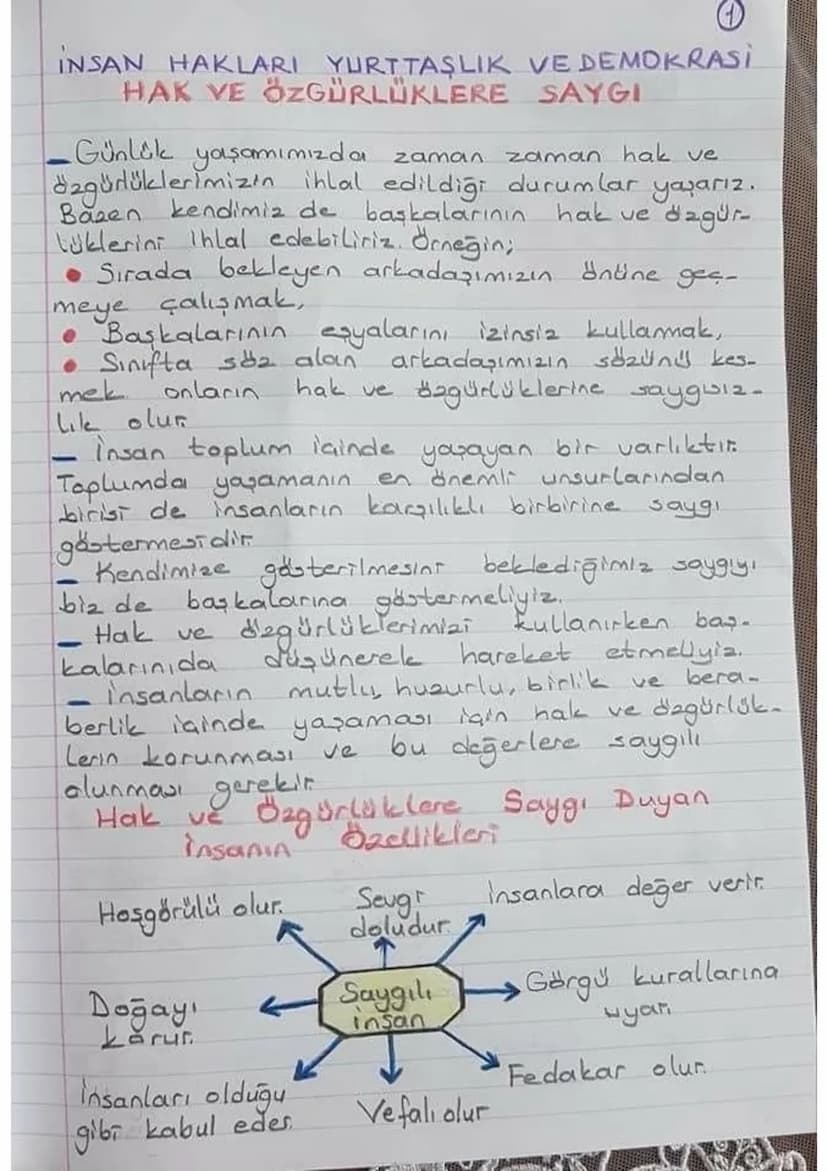 1
İNSAN HAKLARI YURTTAŞLIK VE DEMOKRASİ
HAK VE ÖZGÜRLÜKLERE SAYGI
– Günlük yaşamımızda zaman zaman hak ve
özgürlüklerimizin ihlal edildiği durumlar yaşarız.
Bazen kendimiz de başkalarının hak ve özgür-
lüklerini ihlal edebiliriz. Örneğin;
• Sırada bekleyen arkadaşımızın önüne geç-
meye çalışmak,
• Başkalarının eşyalarını izinsiz kullanmak,
• Sınıfta söz alan arkadaşımızın sözünü kes-
mek onların hak ve özgürlüklerine saygısız-
lık olur.
– İnsan toplum içinde yaşayan bir varlıktır.
Toplumda yaşamanın en önemli unsurlarından
birisi de insanların karşılıklı birbirine saygı
göstermesidir.
– Kendimize gösterilmesini beklediğimiz saygıyı
biz de başkalarına göstermeliyiz.
– Hak ve özgürlüklerimizi kullanırken baş-
kalarınıda düşünerek hareket etmeliyiz.
– İnsanların mutlu, huzurlu, birlik ve bera-
berlik içinde yaşaması için hak ve özgürlük-
lerin korunması ve bu değerlere saygılı
olunması gerekir.
Hak ve Özgürlüklere Saygı Duyan
İnsanın Özellikleri
Hoşgörülü olur.
Sevgi
doludur.
İnsanlara değer verir.
Doğayı
korur.
Saygılı
insan
Görgü kurallarına
uyar.
İnsanları olduğu
gibi kabul eder.
Vefalı olur
Fedakar olur.